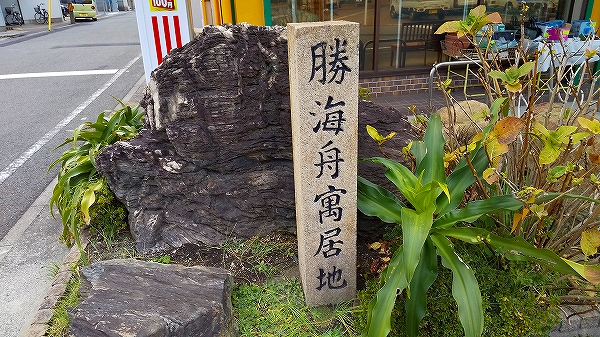 100円
勝海舟寓居地